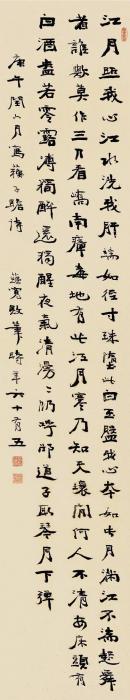 江月照我心江水洗我肝端如徑寸珠墮此白玉盤我心本如此月滿江不湍起舞
者誰歟莫作三人看嶠南瘴毒地有此江月寒乃知天壤間何人不清安床頭有
白酒盎若零露漙獨醉還獨醒夜氣清漫〻仍呼邵道子取琴月下彈
庚午閏六月寫蘇子瞻詩 時年六十有五